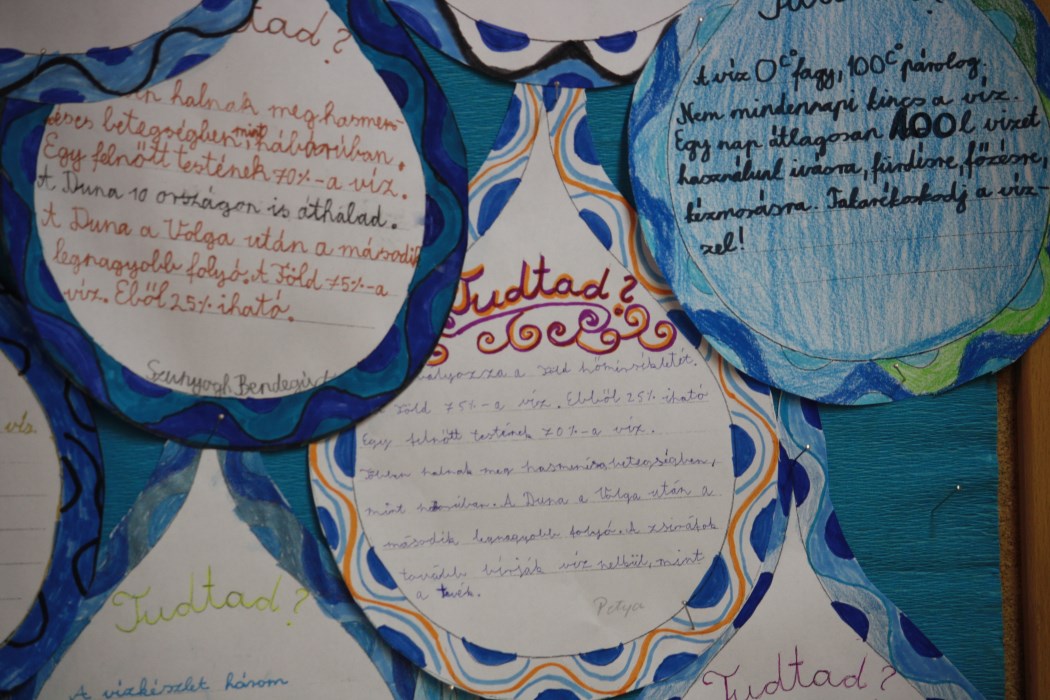 tad?
halnak meg hasmen-
éses betegségben, mint háborúban.
Egy felnőtt testének 70%-a víz.
A Duna 10 országon is áthalad.
A Duna a Volga után a második
legnagyobb folyó. A Föld 75%-a
víz. Eből 25% iható.
Szunyogh Bendegúz
A víz 0 C° fagy, 100 C° párolog.
Nem mindennapi kincs a víz.
Egy nap átlagosan 100 l vizet
használunk ivásra, fürdésre, főzésre,
kézmosásra. Takarékoskodj a víz-
zel!
Tudtad?
a Föld hőmérsékletét.
Föld 75%-a víz. Ebből 25% iható
Egy felnőtt testének 70%-a víz.
Többen halnak meg hasmenéses betegségben,
mint háborúban. A Duna a Volga után a
második legnagyobb folyó. A zsiráfok
tovább bírják víz nélkül, mint
a tevék.
Petya
víz.
Tudtad?
A vízkészlet három
Tudtad?